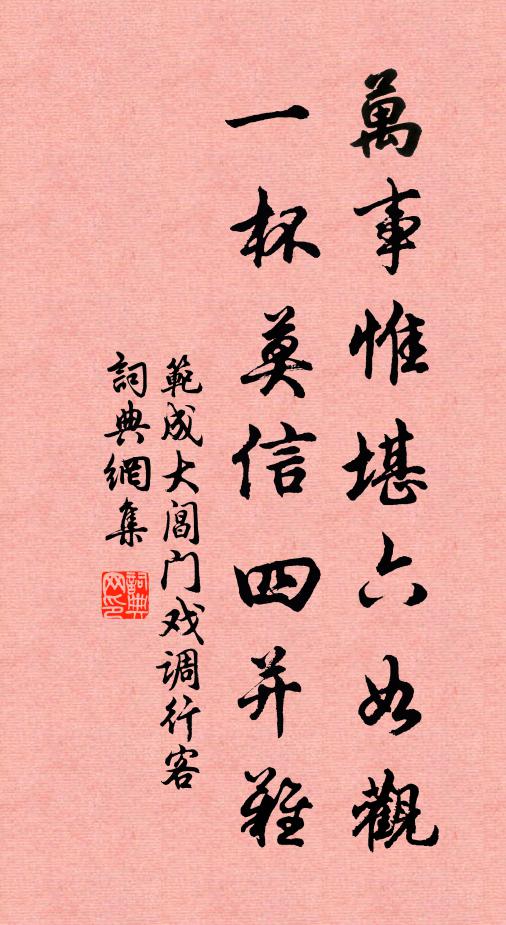 萬事惟堪六如觀
一杯莫信四并難
範成大閶门戏调行客
詞典網集
詞典网印